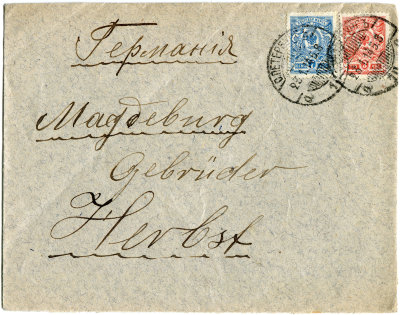 Германія
Magdeburg
Gebrüder
Herbst